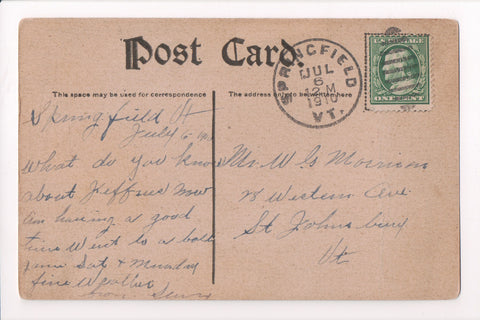 Post Card.
This space may be used for correspondence
The address only to be written here
SPRINGFIELD
JUL
6
12 M
1910
VT.
Springfield Vt
July 6-
What do you know
about Jeffries now
am having a good
time Went to a ball
game Sat & Monday
fine weather
from
Mr W G Morrison
Western Ave
St Johnsbury
Vt